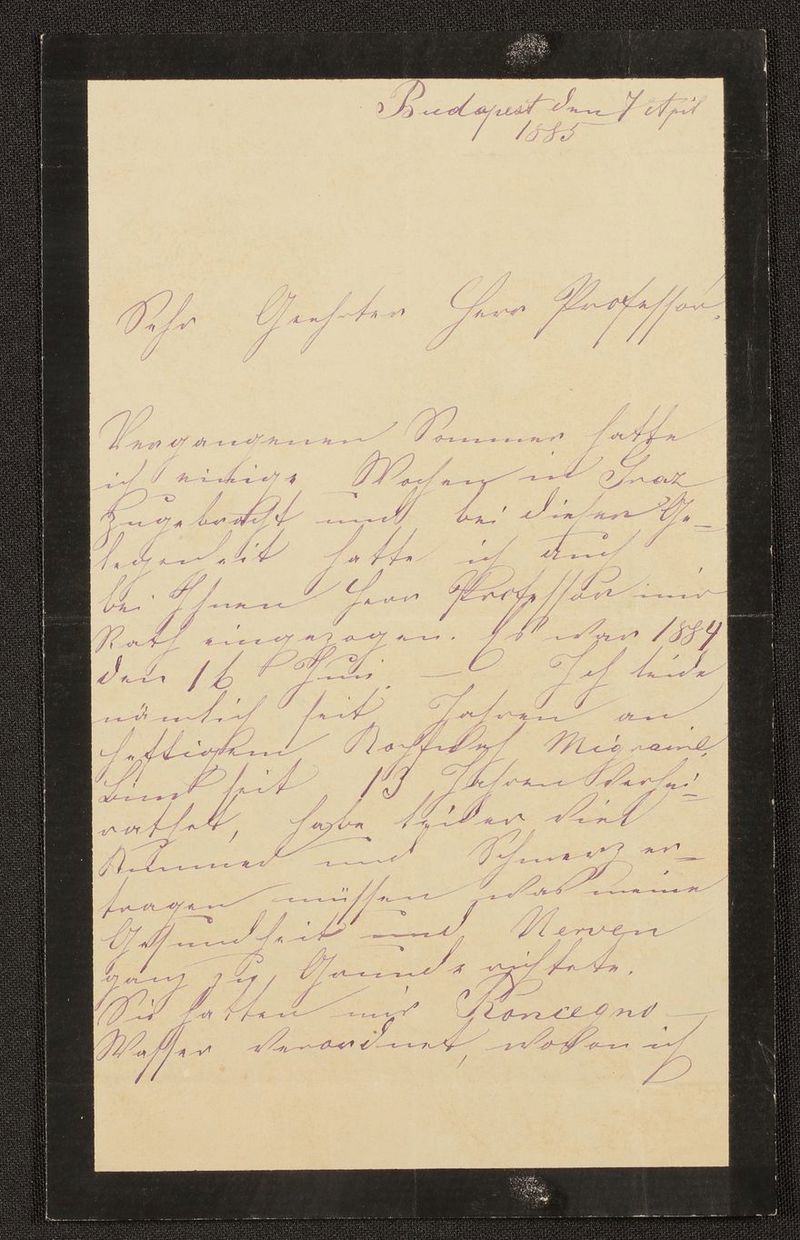 Budapest den 7 April
1885
Sehr Geehrter Herr Professor.
Vergangenen Sommer hatte
ich einige Wochen in Graz
zugebracht und bei dieser Ge-
legenheit hatte ich auch
bei Ihnen Herr Professor mir
Rath eingezogen. Es war 1884
den 16 Juni. — Ich leide
nämlich seit Jahren an
heftigem Kopfweh Migraine,
bin seit 13 Jahren Verhei-
rathet, habe leider viel
Kummer und Schmerz er-
tragen müssen was meine
Gesundheit und Nerven
ganz zu Grunde richtete.
Sie hatten mir Roncegno-
Wasser verordnet, wovon ich